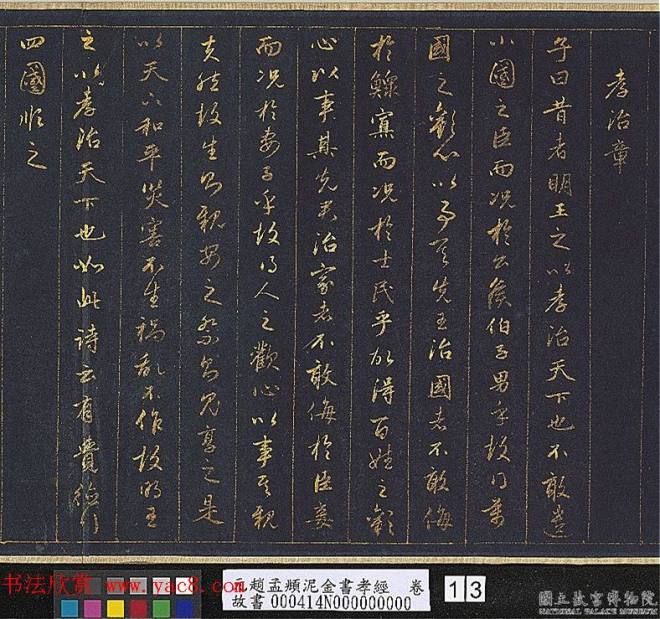 孝治章
子曰昔者明王之以孝治天下也不敢遺
小國之臣而况於公侯伯子男乎故得萬
國之歡心以事其先王治國者不敢侮
於鰥寡而况於士民乎故得百姓之歡
心以事其先君治家者不敢侮於臣妾
而况於妻子乎故得人之歡心以事其親
夫然故生則親安之祭則鬼享之是
以天下和平災害不生禍亂不作故明王
之以孝治天下也如此詩云有覺德行
四國順之
书法欣赏 www.yac8.com
元趙孟頫泥金書孝經 卷
故書 000414N000000000
13
國立故宮博物院
NATIONAL PALACE MUSEUM